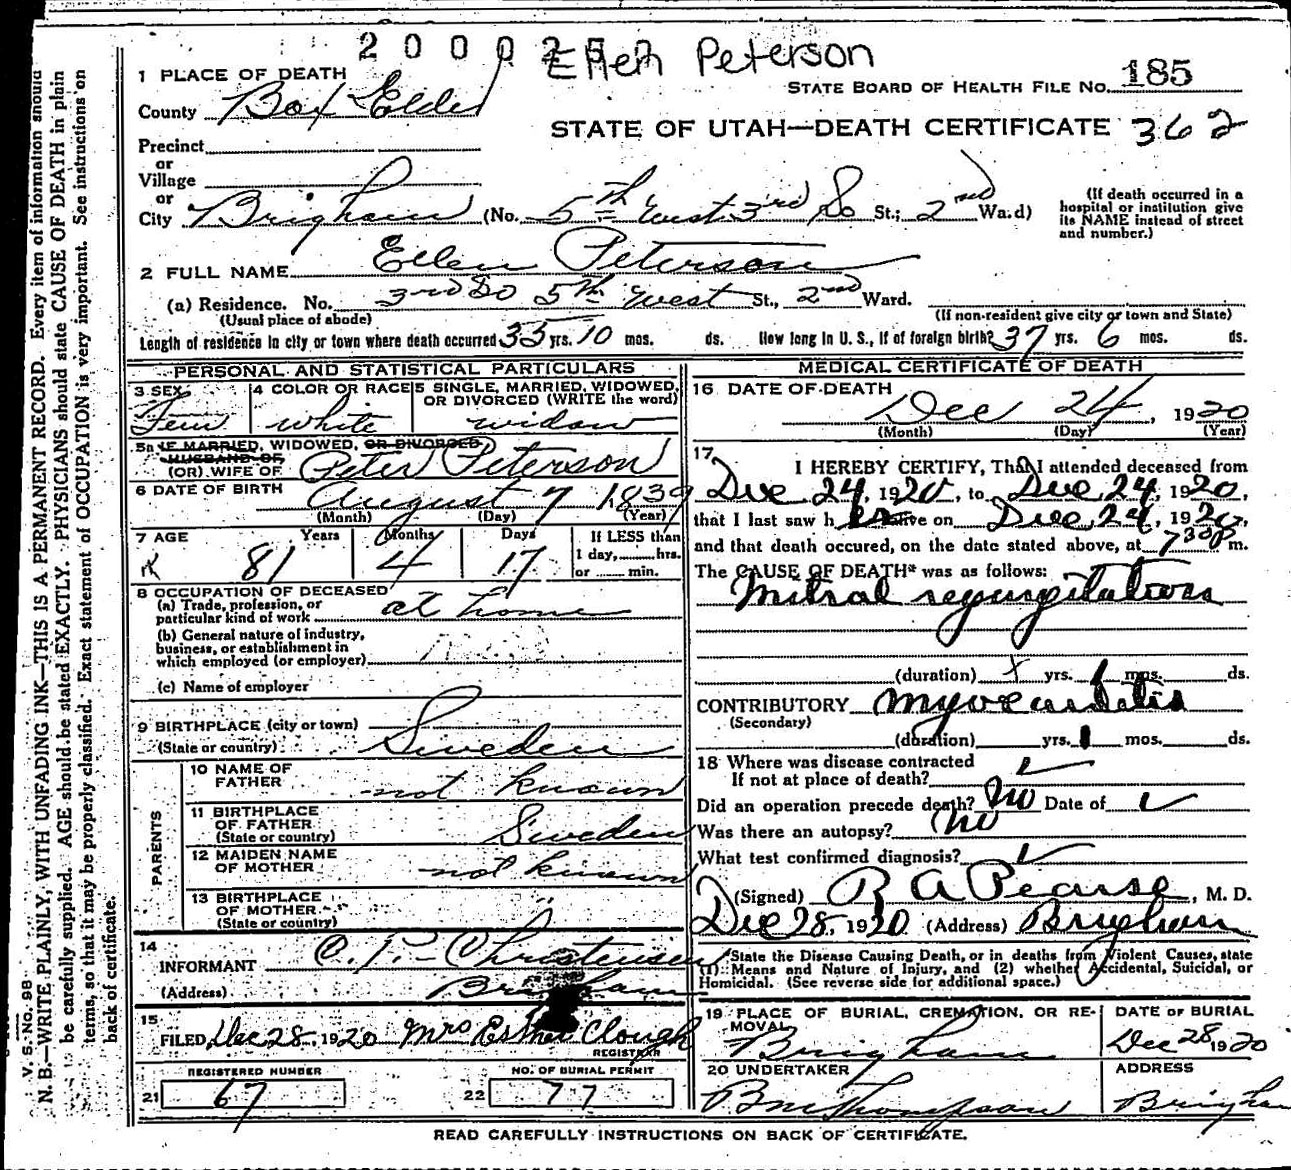 Ellen Peterson
STATE BOARD OF HEALTH FILE NO. 185
1 PLACE OF DEATH
County Box Elder
STATE OF UTAH—DEATH CERTIFICATE 362
Precinct
or
Village
or
City Brigham (No. 5th West 3rd So St.; 2nd Ward)
(If death occurred in a
hospital or institution give
its NAME instead of street
and number.)
2 FULL NAME Ellen Peterson
(a) Residence. No. 3rd So 5th West St., 2nd Ward.
(Usual place of abode)
(If non-resident give city or town and State)
Length of residence in city or town where death occurred 35 yrs. 10 mos. ds. How long in U. S., if of foreign birth? 37 yrs. 6 mos. ds.
PERSONAL AND STATISTICAL PARTICULARS
3 SEX
Fem
4 COLOR OR RACE
white
5 SINGLE, MARRIED, WIDOWED,
OR DIVORCED (WRITE the word)
widow
5a IF MARRIED, WIDOWED, OR DIVORCED
HUSBAND OF
(OR) WIFE OF Peter Peterson
6 DATE OF BIRTH August 7 1839
(Month) (Day) (Year)
7 AGE Years Months Days
81 4 17
If LESS than
1 day, hrs.
or min.
8 OCCUPATION OF DECEASED
(a) Trade, profession, or
particular kind of work at home
(b) General nature of industry,
business, or establishment in
which employed (or employer)
(c) Name of employer
9 BIRTHPLACE (city or town)
(State or country) Sweden
PARENTS
10 NAME OF
FATHER not known
11 BIRTHPLACE
OF FATHER
(State or country) Sweden
12 MAIDEN NAME
OF MOTHER not known
13 BIRTHPLACE
OF MOTHER
(State or country)
14
INFORMANT C. P. Christensen
(Address) Brigham
15
FILED Dec 28, 1920 Mrs Esther Clough
REGISTRAR
REGISTERED NUMBER
21 67
NO. OF BURIAL PERMIT
22 77
MEDICAL CERTIFICATE OF DEATH
16 DATE OF DEATH
Dec 24, 1920
(Month) (Day) (Year)
17
I HEREBY CERTIFY, That I attended deceased from
Dec 24, 1920, to Dec 24, 1920,
that I last saw her alive on Dec 24, 1920,
and that death occured, on the date stated above, at 7 30 P m.
The CAUSE OF DEATH* was as follows:
Mitral regurgitation
(duration) yrs. 1 mos. ds.
CONTRIBUTORY myocarditis
(Secondary)
(duration) yrs. 1 mos. ds.
18 Where was disease contracted
If not at place of death?
Did an operation precede death? No Date of
Was there an autopsy? No
What test confirmed diagnosis?
(Signed) R A Pearse, M. D.
Dec 28, 1920 (Address) Brigham
State the Disease Causing Death, or in deaths from Violent Causes, state
(1) Means and Nature of Injury, and (2) whether Accidental, Suicidal, or
Homicidal. (See reverse side for additional space.)
19 PLACE OF BURIAL, CREMATION, OR RE-
MOVAL
Brigham
DATE OF BURIAL
Dec 28 1920
20 UNDERTAKER
Thompson
ADDRESS
Brigham
READ CAREFULLY INSTRUCTIONS ON BACK OF CERTIFICATE.
V. S. NO. 98
N. B.—WRITE PLAINLY, WITH UNFADING INK—THIS IS A PERMANENT RECORD. Every item of information should
be carefully supplied. AGE should be stated EXACTLY. PHYSICIANS should state CAUSE OF DEATH in plain
terms, so that it may be properly classified. Exact statement of OCCUPATION is very important. See instructions on
back of certificate.